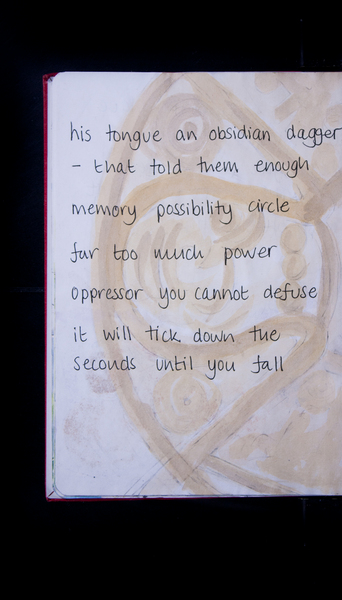 his tongue an obsidian dagger
- that told them enough
memory possibility circle
far too much power
oppressor you cannot defuse
it will tick down the
seconds until you fall